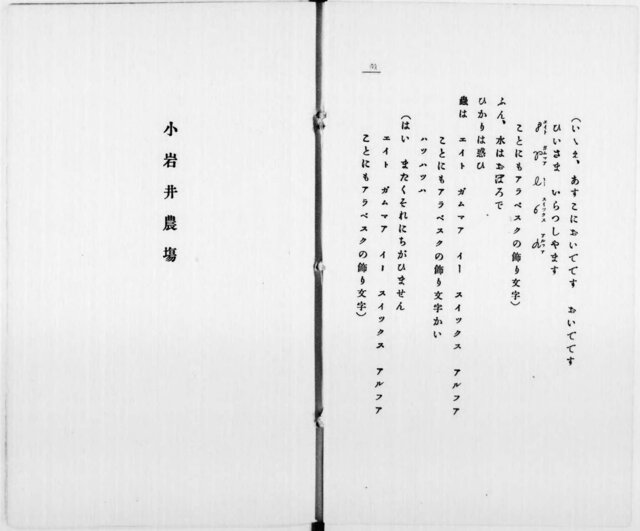 (いゝえ、あすこにおいでです おいでです
ひいさま いらつしやます
8 γ e 6 α
エイト ガムマア イー スイツクス アルフア
ことにもアラベスクの飾り文字)
ふん、水はおぼろで
ひかりは惑ひ
蟲は エイト ガムマア イー スイツクス アルフア
ことにもアラベスクの飾り文字かい
ハツハツハ
(はい まつたくそれにちがひません
エイト ガムマア イー スイツクス アルフア
ことにもアラベスクの飾り文字)
小岩井農塲